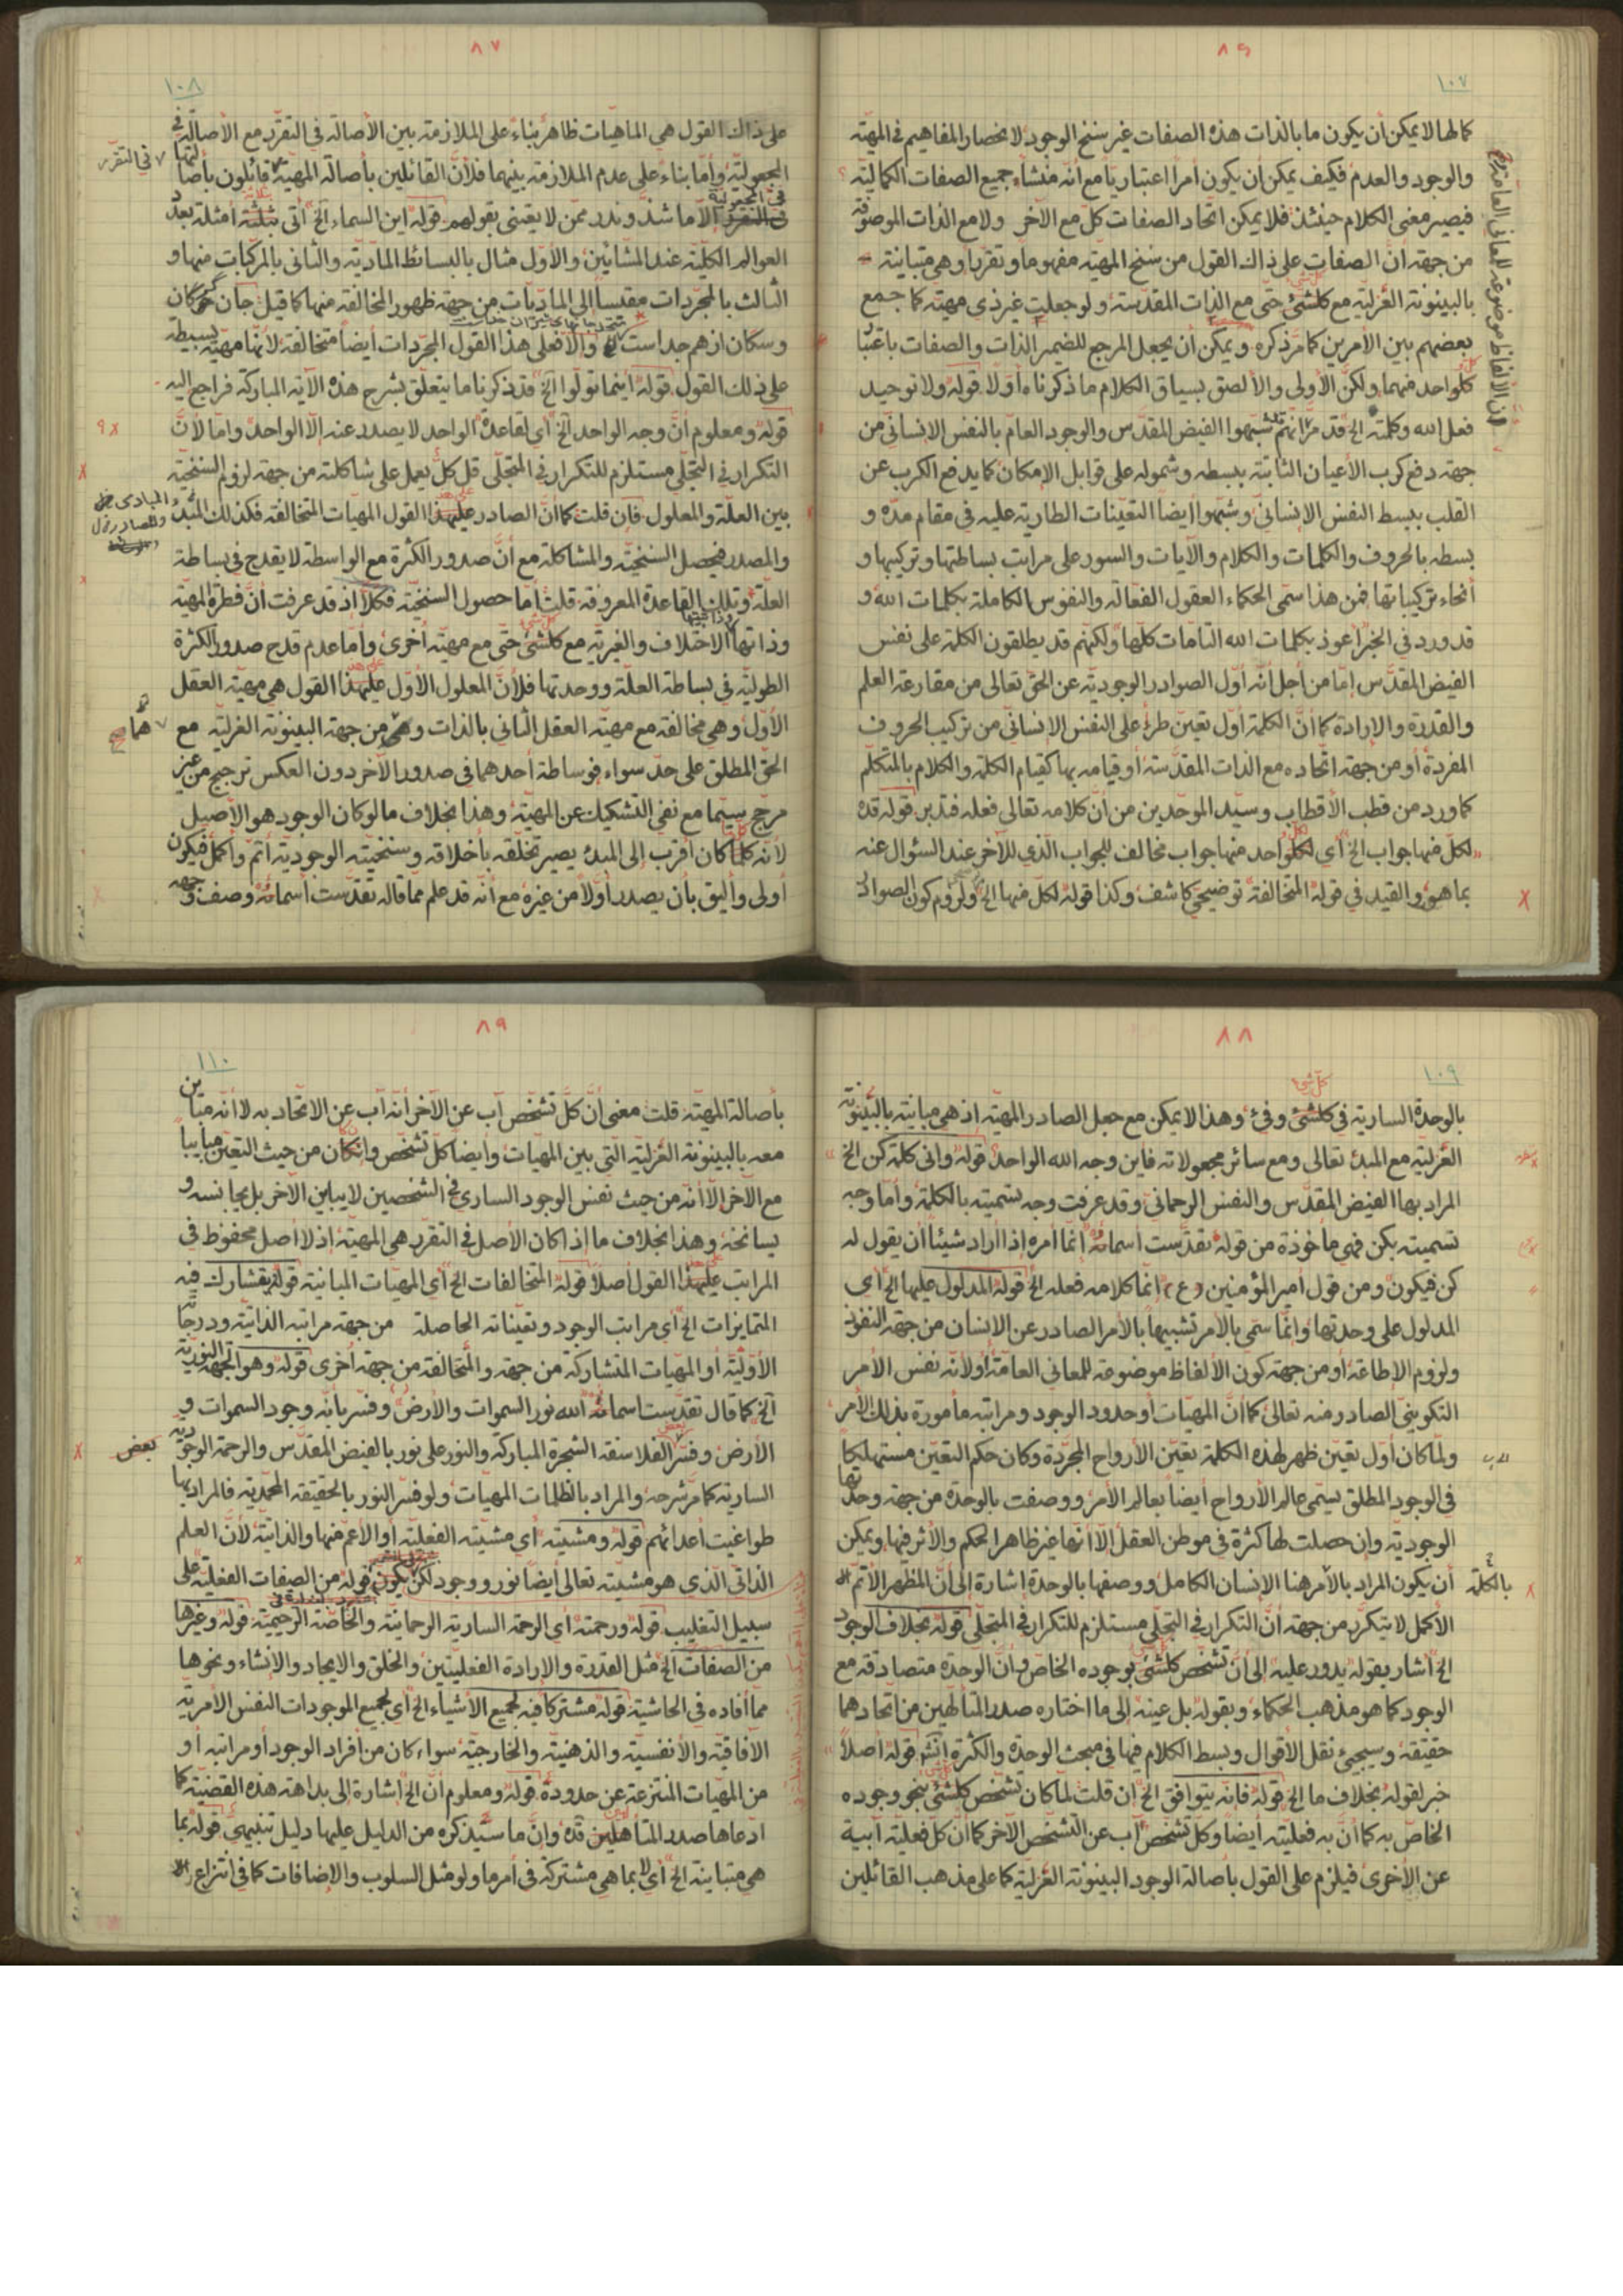 ٨٦
١٠٧
كمالها لا يمكن أن يكون ما بالذات هذه الصفات غير سنخ الوجود لانحصار المفاهيم في المهيّة
والوجود والعدم فكيف يمكن أن يكون أمراً اعتبارياً مع أنّه منشاء جميع الصفات الكماليّة
فيصير معنى الكلام حينئذ فلا يمكن اتحاد الصفات كلّ مع الآخر ولا مع الذات الموصوفة
من جهة أنّ الصفات على ذاك القول من سنخ المهيّة مفهوما وتقرّرا وهي متباينة
بالبينونة العزليّة مع كلّ شئ حتّى مع الذات المقدسة ولو جعليت غير ذي مهيّة كما جمع
بعضهم بين الأمرين كما مرّ ذكره ويمكن أن يجعل المرجع للضمير الذات والصفات باعتبار
كلّ واحد منهما ولكنّ الأولى والألصق بسياق الكلام ما ذكرناه أوّلا قوله ولا توحيد
فعل الله وكلمته الخ قد مرّ انّهم شبّهوا الفيض المقدّس والوجود العامّ بالنفس الإنسانيّ من
جهة دفع كرب الأعيان الثابتة ببسطه وشموله على قوابل الإمكان كما يدفع الكرب عن
القلب ببسط النفس الإنسانيّ وشبّهوا أيضا التعيّنات الطارية عليه في مقام مدّه و
بسطه بالحروف والكلمات والكلام والآيات والسور على مراتب بساطتها وتركيبها و
أنحاء تركيباتها فمن هذا سمّى الحكماء العقول الفعّالة والنفوس الكاملة بكلمات الله و
قد ورد في الخبر أعوذ بكلمات الله التامّات كلّها ولكنّهم قد يطلقون الكلمة على نفس
الفيض المقدّس إمّا من أجل أنّه أوّل الصوادر الوجوديّة عن الحقّ تعالى من مقارعة العلم
والقدرة والإرادة كما أنّ الكلمة أوّل تعيّن طرء على النفس الإنسانيّ من تركيب الحروف
المفردة أو من جهة اتّحاده مع الذات المقدّسة أو قيامه بها كقيام الكلمة والكلام بالمتكلّم
كما ورد من قطب الأقطاب وسيّد الموحّدين من أنّ كلامه تعالى فعله فتدبر قوله قده
لكلّ منها جواب الخ أي لكلّ واحد منها جواب مخالف للجواب الّذي للآخر عند السؤال عنه
بما هو والقيد في قوله المتخالفة توضيحيّ كاشف وكذا قوله لكلّ منها الخ ولزوم كون الصوادر
من الألفاظ موضوعة للمعاني العامّة
٨٧
١٠٨
على ذاك القول هي الماهيات ظاهر بناءً على الملازمة بين الأصالة في التقرّر مع الأصالة في
المجعوليّة وأمّا بناء على عدم الملازمة بينهما فلأنّ القائلين بأصالة المهيّة قائلون بأصالتها
في المجعولية إلّا ما شذّ وندر ممّن لا يعتنى بقولهم قوله اين السماء الخ أتى بثلثة أمثلة بعدد
في التقرّر
العوالم الكليّة عند المشائين والأوّل مثال بالبسائط الماديّة والثاني بالمركبات منها و
الثالث بالمجرّدات مقيسا إلى الماديّات من جهة ظهور المخالفة منها كما قيل جان گرگان
وسكان از هم جداست متّحد جانهاى شيران خداست وإلّا فعلى هذا القول المجرّدات أيضاً متخالفة لأنّها مهيّة بسيطة
على ذلك القول قوله اينما تولّوا الخ قد ذكرنا ما يتعلّق بشرح هذه الآية المباركة فراجع اليه
قوله ومعلوم أنّ وجه الواحد الخ أي لقاعدة الواحد لا يصدر عنه إلّا الواحد وامّا لأنّ
التكرار في التجلّي مستلزم للتكرار في المتجلّى قل كلّ يعمل على شاكلته من جهة لزوم السنخيّة
بين العلّة والمعلول فإن قلت كما أنّ الصادر على هذا القول المهيّات المتخالفة فكذلك المبدء
والمصدر فيحصل السنخيّة والمشاكلة مع أنّ صدور الكثرة مع الواسطة لا يقدح في بساطة
العلّة وتلك القاعدة المعروفة قلت أمّا حصول السنخيّة فكلّا اذ قد عرفت أنّ فطرة المهيّة
وذاتها الاختلاف والغيريّة مع كلّ شئ حتّى مع مهيّة أخرى وأمّا عدم قدح صدور الكثرة
الطوليّة في بساطة العلّة ووحدتها فلأنّ المعلول الأوّل على هذا القول هي مهيّة العقل
الأوّل وهي مخالفة مع مهيّة العقل الثاني بالذات وهما من جهة البينونة العزليّة مع
الحقّ المطلق على حدّ سواء فوساطة أحدهما في صدور الآخر دون العكس ترجيح من غير
مرجّح سيّما مع نفي التشكيك عن المهيّة وهذا بخلاف ما لو كان الوجود هو الأصيل
لأنّه كلّما كان أقرب إلى المبدء يصير تخلّقه بأخلاقه وسنخيّته الوجودية أتمّ وأكمل فيكون
أولى وأليق بأن يصدر أوّلاً من غيره مع أنّه قد علم ممّا قاله تقدّست أسمائه وصف وجهه
٨٨
١٠٩
بالوحدة السارية في كلّ شئ وفيء وهذا لا يمكن مع جعل الصادر المهيّة إذ هي مباينة بالبينونة
العزليّة مع المبدء تعالى ومع سائر مجعولاته فاين وجه الله الواحد قوله وانّى كلمة كن الخ
المراد بها الفيض المقدّس والنفس الرحمانيّ وقد عرفت وجه تسميته بالكلمة وأمّا وجه
تسميته بكن فهي مأخوذة من قوله تقدّست أسمائه انّما أمره إذا أراد شيئاً أن يقول له
كن فيكون ومن قول أمير المؤمنين (ع) انّما كلامه فعله الخ قوله المدلول عليها الخ أي
المدلول على وحدتها وانّما سمّي بالأمر تشبيهاً بالأمر الصادر عن الإنسان من جهة النفوذ
ولزوم الإطاعة أو من جهة كون الألفاظ موضوعة للمعاني العامّة أو لأنّه نفس الأمر
التكويني الصادر منه تعالى كما أنّ المهيّات أو حدود الوجود ومراتبه مأمورة بذلك الأمر
ولمّا كان أوّل تعيّن ظهر لهذه الكلمة تعيّن الأرواح المجرّدة وكان حكم التعيّن مستهلكا
في الوجود المطلق يسمّى عالم الأرواح أيضاً بعالم الأمر ووصفت بالوحدة من جهة وحدتها
الوجودية وإن حصلت لها كثرة في موطن العقل إلّا أنّها غير ظاهر الحكم والأثر فيها ويمكن
أن يكون المراد بالأمر هنا الإنسان الكامل ووصفها بالوحدة إشارة إلى أنّ المظهر الأتمّ
بالكلمة
الأكمل لا يتكرّر من جهة أنّ التكرار في التجلّي مستلزم للتكرار في المتجلّي قوله بخلاف الوجود
الخ أشار بقوله يدور عليه إلى أنّ تشخّص كلّ شئ بوجوده الخاصّ وأنّ الوحدة متصادقة مع
الوجود كما هو مذهب الحكماء وبقوله بل عينه إلى ما اختاره صدر المتألّهين من اتّحادهما
حقيقة وسيجيئ نقل الأقوال وبسط الكلام فيها في مبحث الوحدة والكثرة انشه قوله أصلاً
خبر لقوله بخلاف ما الخ قوله فانّه يتوافق الخ إن قلت لمّا كان تشخّص كلّ شئ بنحو وجوده
الخاصّ به كما أنّ به فعليّته أيضاً وكلّ تشخّص آب عن التشخّص الآخر كما أنّ كلّ فعليّة آبية
عن الأخرى فيلزم على القول بأصالة الوجود البينونة العزليّة كما على مذهب القائلين
٨٩
١١٠
بأصالة المهيّة قلت معنى أنّ كلّ تشخّص آب عن الآخر أنّه آب عن الاتحاد به لا أنّه متباين
معه بالبينونة العزليّة التي بين المهيّات وأيضا كلّ تشخّص وإن كان من حيث التعيّن مبايناً
مع الآخر إلّا أنّه من حيث نفس الوجود الساري في الشخصين لا يباين الآخر بل يجانسه و
يسانخه وهذا بخلاف ما إذا كان الأصل في التقرّر هي المهيّة إذ لا أصل محفوظ في
المراتب على هذا القول أصلاً قوله المتخالفات الخ أي المهيات المباينة قوله يتشارك فيه
المتمايزات الخ أي مراتب الوجود وتعيّناته الحاصلة من جهة مراتبه الذاتيّة ودرجاته
الأوّليّة أو المهيّات المتشاركة من جهة والمتخالفة من جهة أخرى قوله وهو الجهة النوريّة
الخ كما قال تقدّست اسمائه الله نور السموات والأرض وفسّر بأنّه وجود السموات و
الأرض وفسّر بعض الفلاسفة الشجرة المباركة والنور على نور بالفيض المقدّس والرحمة الوجوديّة
السارية كما مرّ شرحه والمراد بالظلمات المهيّات ولو فسّر النور بالحقيقة المحمّدية فالمراد بها
طواغيت أعدائهم قوله ومشيّته أي مشيّته الفعليّة أو الأعمّ منها والذاتيّة لأنّ العلم
الذاتي الذي هو مشيّته تعالى أيضاً نور ووجود لكن يكون قوله من الصفات الفعليّة على
سبيل التغليب قوله ورحمته أي الرحمة السارية الرحمانية والخاصّة الرحيميّة قوله وغيرها
من الصفات الخ مثل القدرة والإرادة الفعليّتين والخلق والإيجاد والإنشاء ونحوها
ممّا أفاده في الحاشية قوله مشتركا فيه لجميع الأشياء الخ أي لجميع الموجودات النفس الأمرية
الآفاقيّة والأنفسيّة والذهنيّة والخارجيّة سواء كان من أفراد الوجود أو مراتبه أو
من المهيات المنتزعة عن حدوده قوله ومعلوم أنّ الخ إشارة إلى بداهة هذه القضيّة كما
ادعاها صدر المتألهين قدّه وإنّ ما سيذكره من الدليل عليها دليل تنبيهيّ قوله بما
هي متباينة الخ أي لا بما هي مشتركة في أمر ما ولو مثل السلوب والإضافات كما في انتزاع